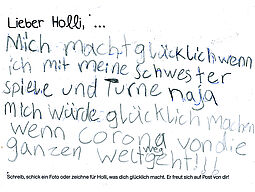 Lieber Holli, ...
Mich macht glücklich wenn
ich mit meine schwester
spiele und Turne naja
mich würde glücklich machn
wenn corona weg von die
ganzen welt geht!!!
Schreib, schick ein Foto oder zeichne für Holli, was dich glücklich macht. Er freut sich auf Post von dir!